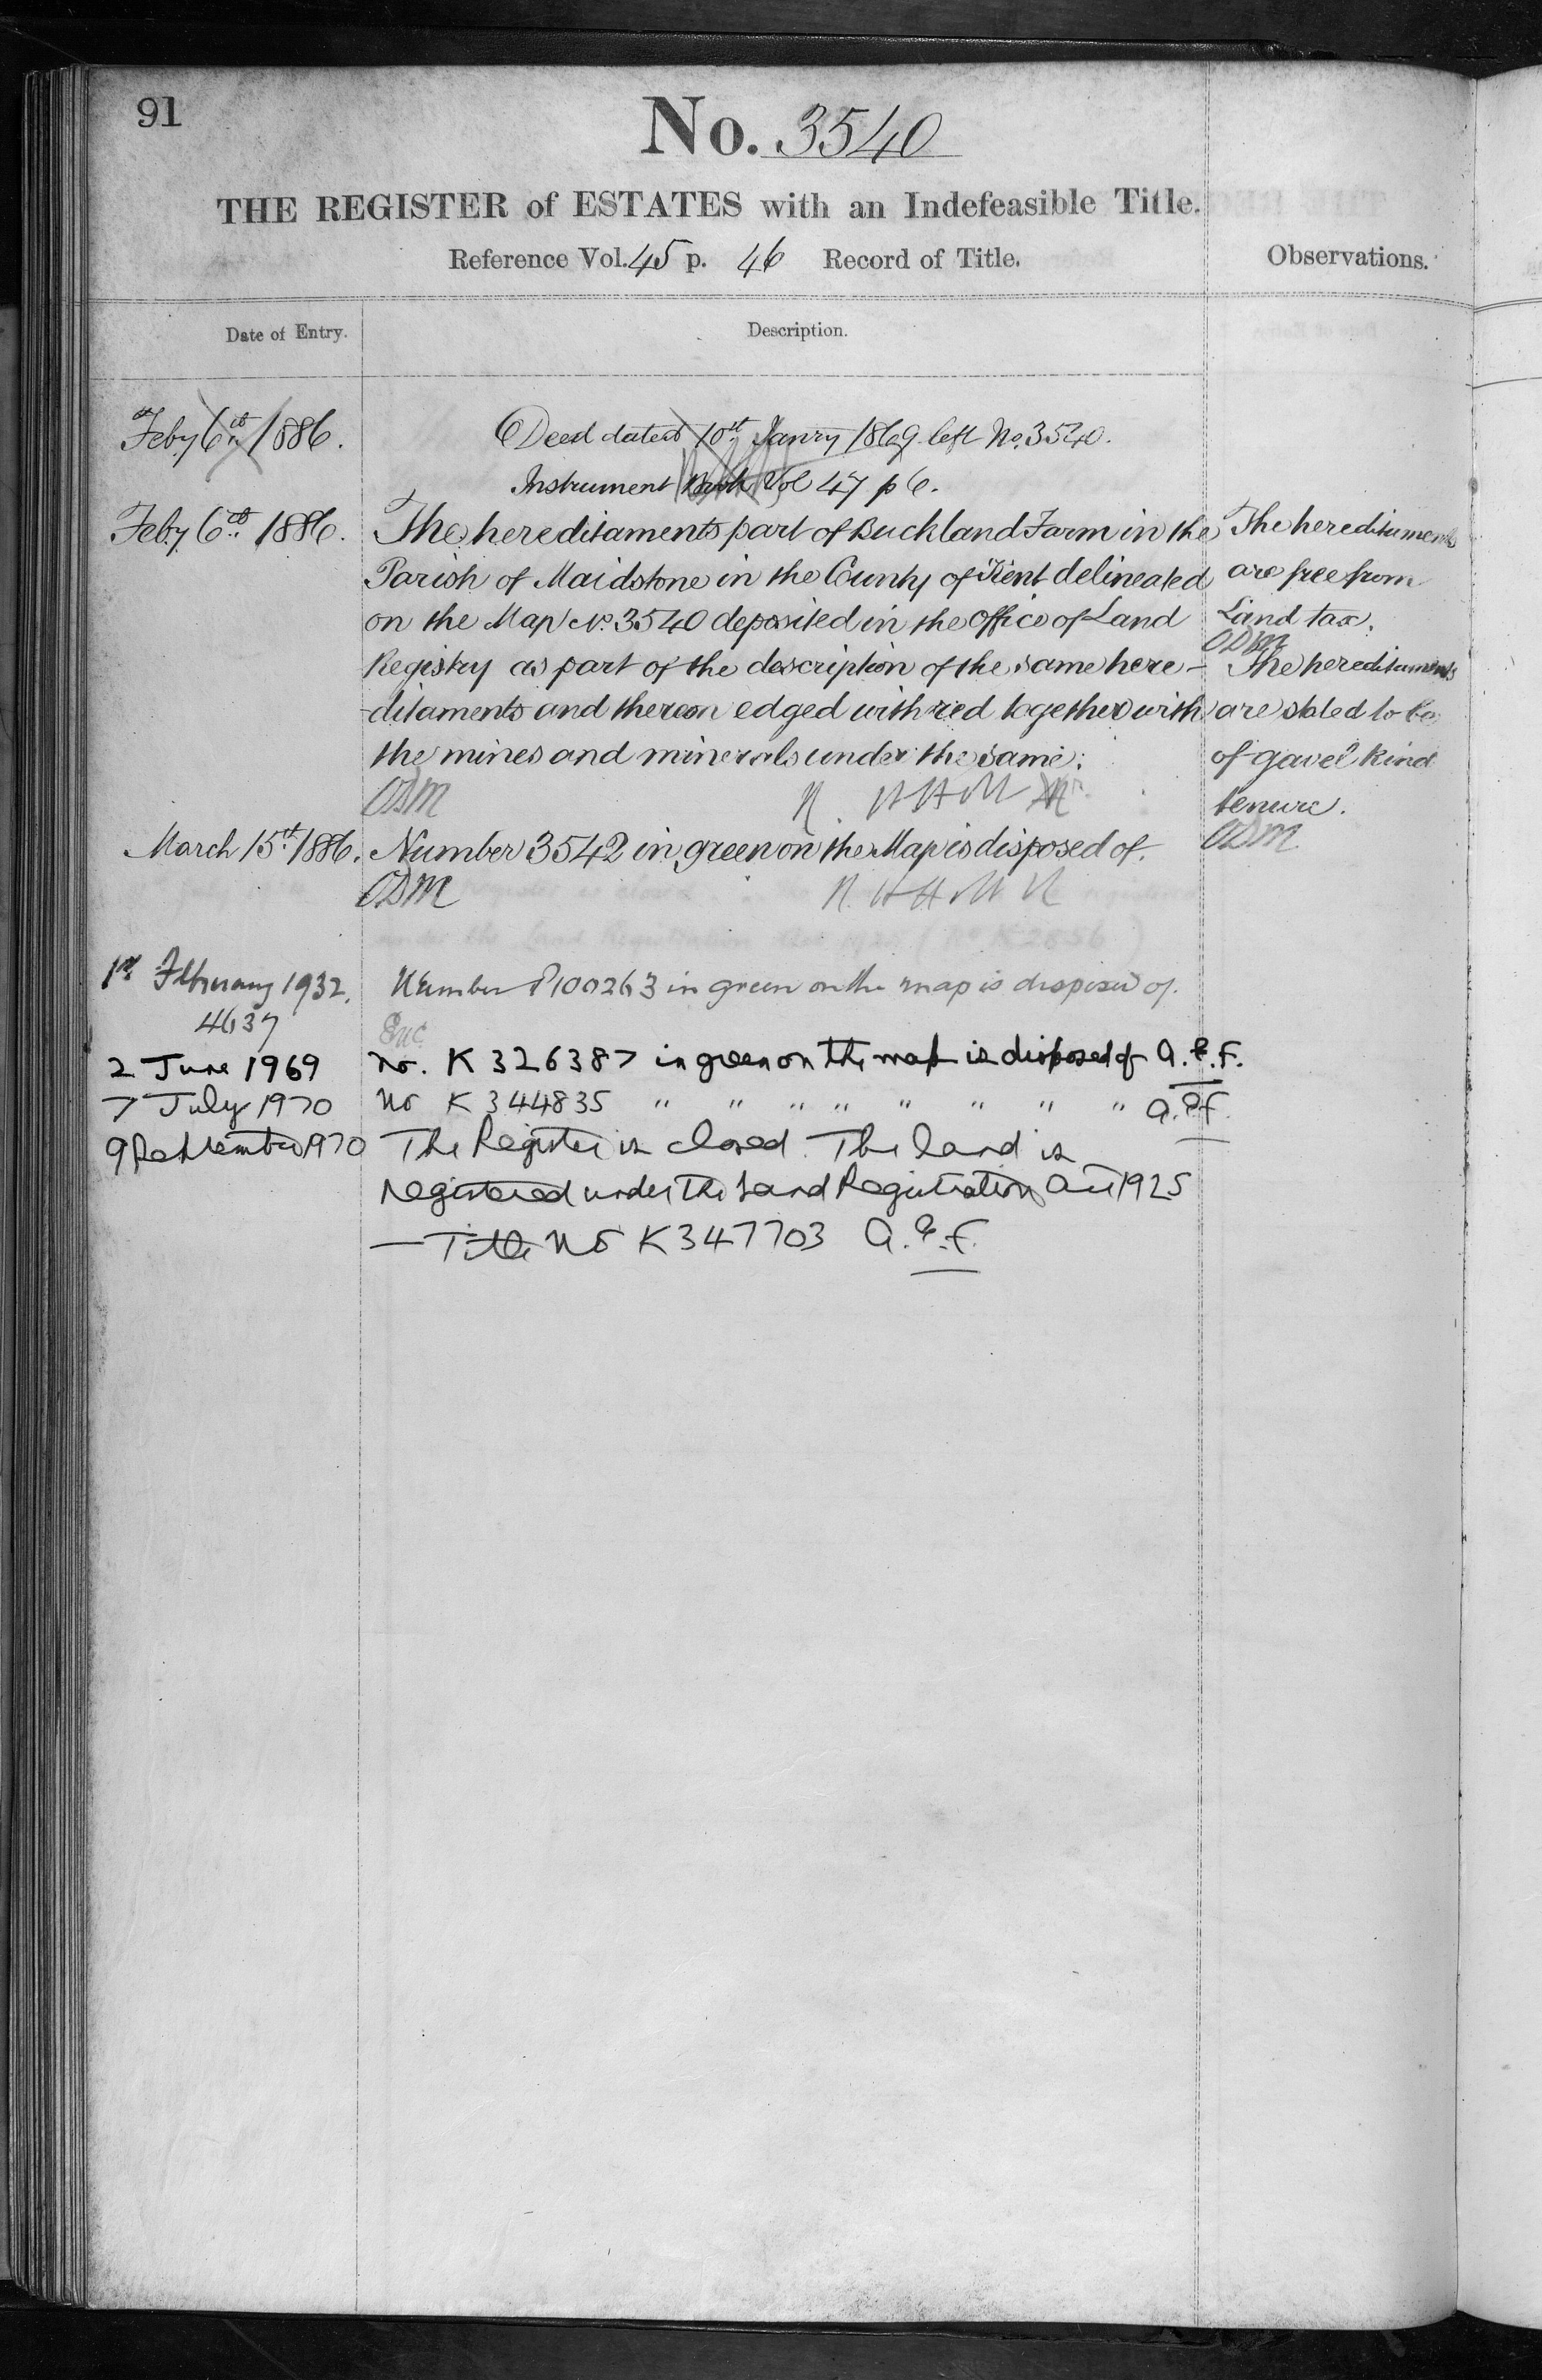 91
No. 3540
THE REGISTER of ESTATES with an Indefeasible Title.
Reference Vol. 45 p. 46 Record of Title.
Observations.
Date of Entry.
Description.
Feby 6th 1886.
Deed dated Janry 1869 left No. 3540.
Instrument Book Vol 47 p 6.
Feby 6th 1886.
The hereditaments part of Buckland Farm in the
Parish of Maidstone in the County of Kent delineated
on the Map No. 3540 deposited in the office of Land
Registry as part of the description of the same here-
-ditaments and thereon edged with red together with
the mines and minerals under the same.
ODM
The hereditaments
are free from
Land tax.
ODM
The hereditaments
are stated to be
of gavel kind
tenure.
ODM
March 15th 1886.
Number 3542 in green on the Map is disposed of.
ODM
1st February 1932.
4637
Number P100263 in green on the map is disposed of.
2 June 1969
No. K 326387 in green on the map is disposed of A.E.F.
7 July 1970
No K 344835 " " " " " " " " A.E.F.
9 September 1970
The Register is closed. The land is
registered under the Land Registration Act 1925
— Title No K347703 A.E.F.